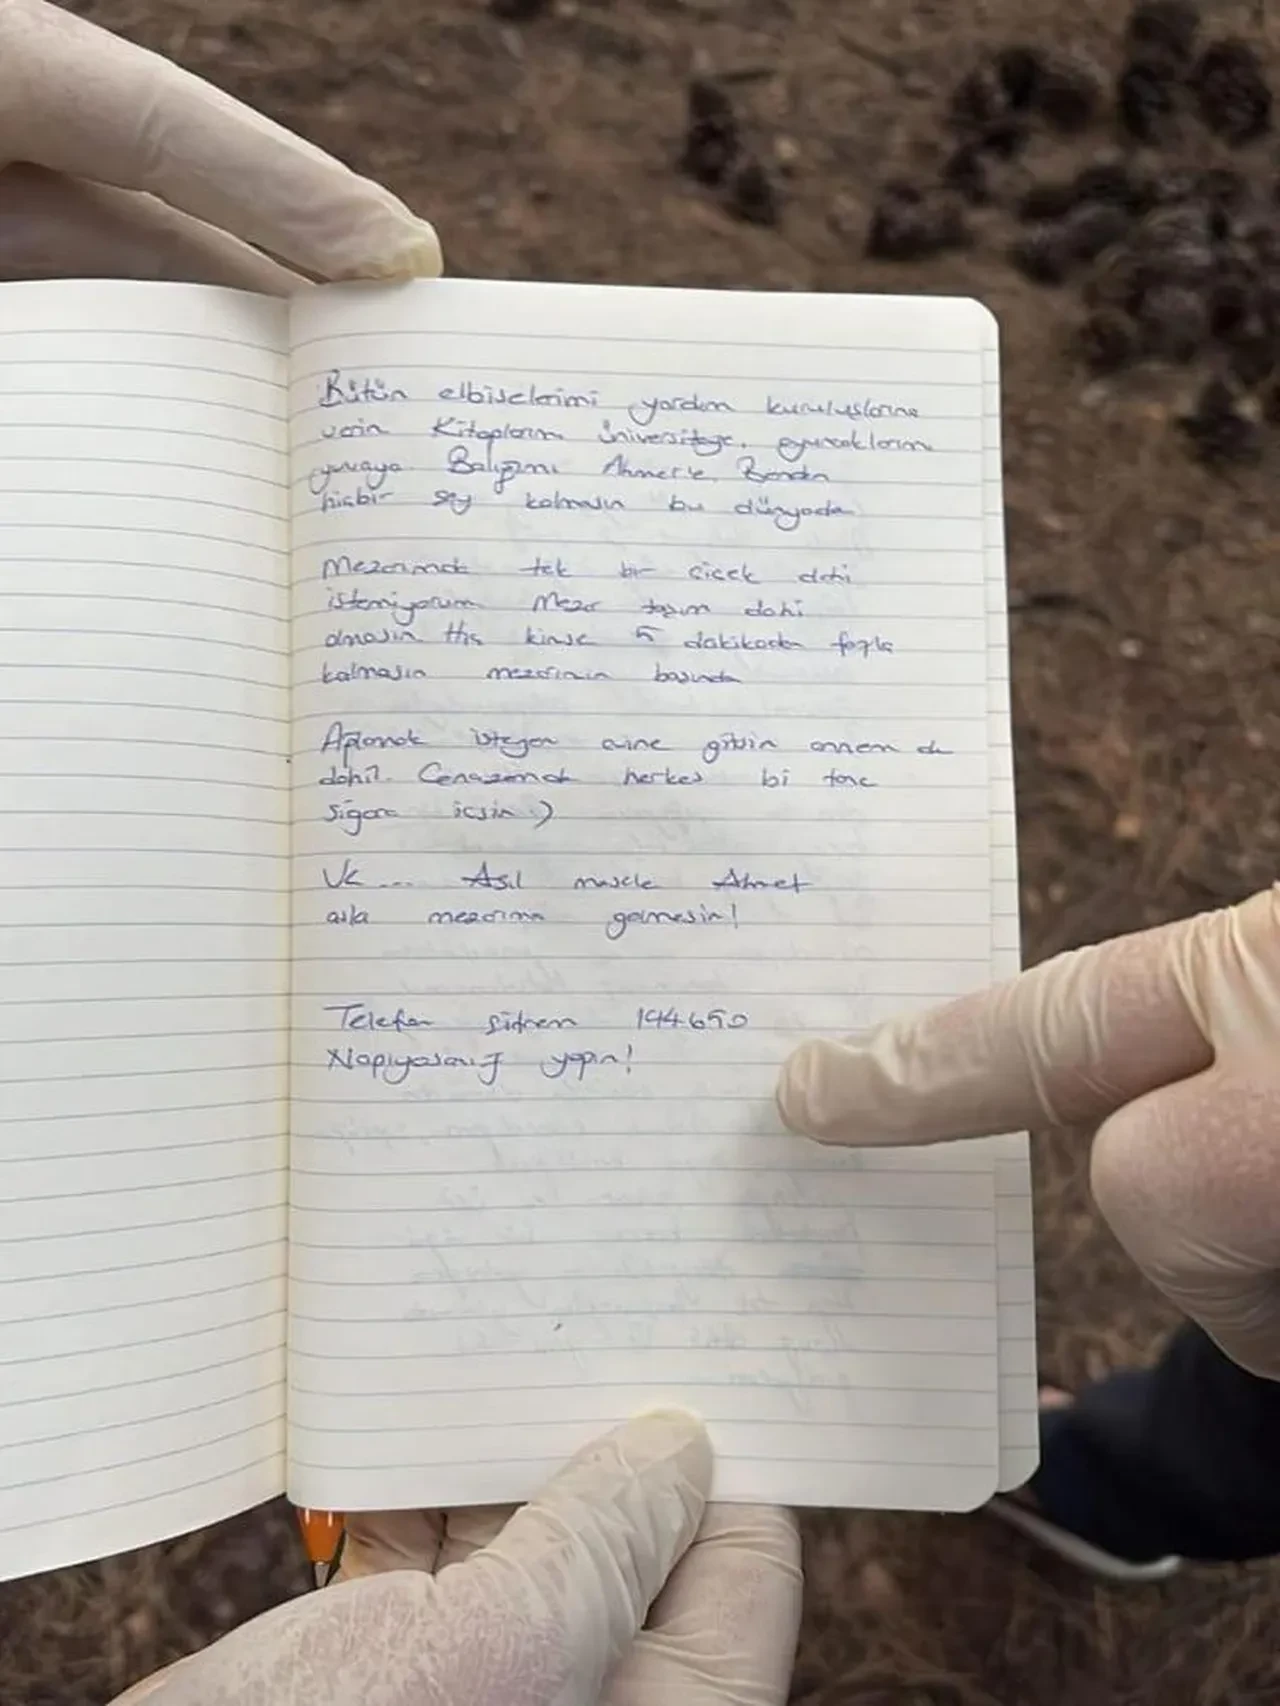 Bütün elbiselerimi yardım kuruluşlarına
verin Kitaplarım üniversiteye, oyuncaklarım
yuvaya. Balığımı Ahmet'e. Benden
hiçbir şey kalmasın bu dünyada
Mezarımda tek bir çiçek dahi
istemiyorum. Mezar taşım dahi
olmasın. Hiç kimse 5 dakikadan fazla
kalmasın mezarımın başında
Ağlamak isteyen evine gitsin annem de
dahil. Cenazemde herkes bi tane
sigara içsin :)
Ve ... Asıl mesele Ahmet
asla mezarıma gelmesin!
Telefon şifrem 194650
Napıyosanız yapın!